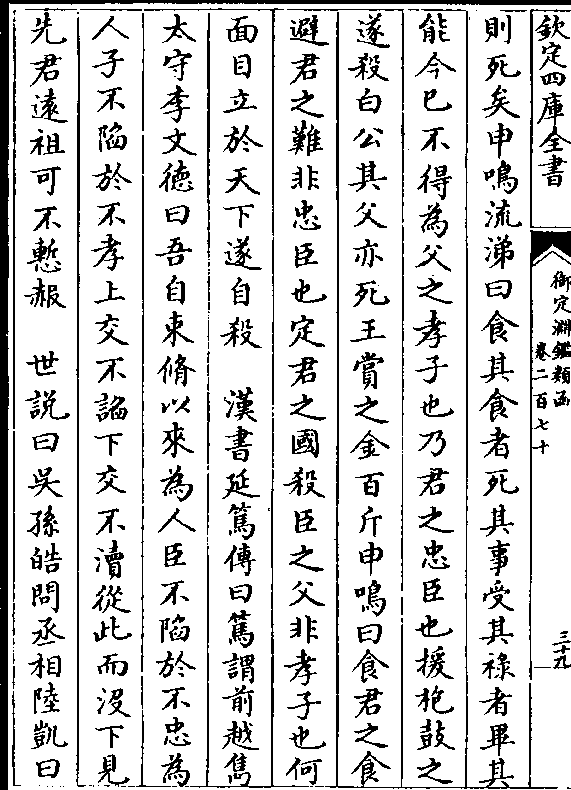 欽定四庫全書
御定淵鑑類函
卷二百七十
三十九
則死矣申鳴流涕曰食其食者死其事受其祿者畢其
能今已不得為父之孝子也乃君之忠臣也援枹鼓之
遂殺白公其父亦死王賞之金百斤申鳴曰食君之食
避君之難非忠臣也定君之國殺臣之父非孝子也何
面目立於天下遂自殺　漢書延篤傳曰篤謂前越雋
太守李文德曰吾自束脩以來為人臣不陷於不忠為
人子不陷於不孝上交不諂下交不瀆從此而沒下見
先君遠祖可不慙赧　世說曰吳孫皓問丞相陸凱曰